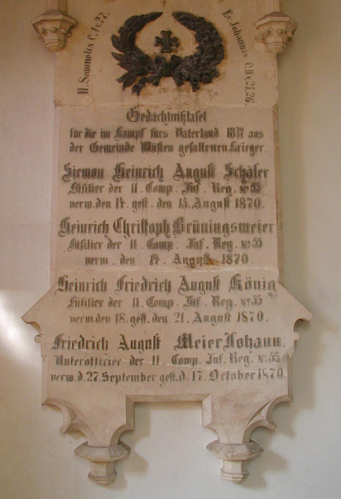 II. Samuelis C. 1. v. 27.
Ev. Johannis C. 11 v. 25. 26.
Gedächtnißtafel
für die im Kampf fürs Vaterland 1870 aus
der Gemeinde Wüsten gefallenen Krieger.
Siemon Heinrich August Schäfer
Füsilier der 11. Comp. Inf. Reg. No. 55
verw. den 14. gest. den 15. August 1870.
Heinrich Christoph Brüningsmeier
Füsilier der 11. Comp. Inf. Reg. No. 55
verw. den 14. August 1870.
Heinrich Friedrich August König
Füsilier der 11. Comp. Inf. Reg. No. 55
verw. den 18. gest. den 21. August 1870.
Friedrich August Meier Johann.
Unterofficier der 11. Comp. Inf. Reg. No. 55.
verw. d. 27. September gest. d. 17. October 1870.